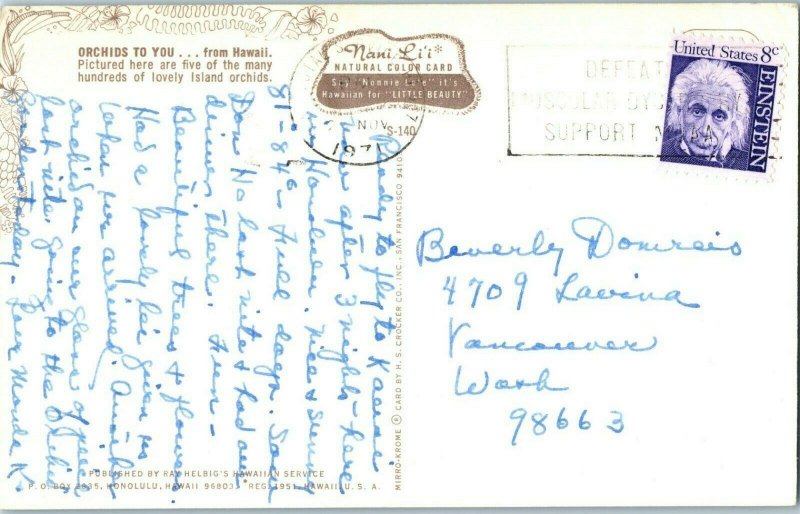 ORCHIDS TO YOU . . . from Hawaii.
Pictured here are five of the many
hundreds of lovely Island orchids.
Nani Li'i*
NATURAL COLOR CARD
Say "Nonnie Lee" it's
Hawaiian for "LITTLE BEAUTY"
S-140
NOV
1971
DEFEAT
MUSCULAR DYSTROPHY
SUPPORT
United States 8c
EINSTEIN
Ready to fly to Kauai
now after 3 nights here
in Honolulu. Nice & sunny
81°-84° Full days. Saw
Don Ho last nite & had our
dinner there. Fun -
Beautiful trees & flowers
Had a lovely lei given us
when we arrived. Another
orchid on our
last nite. Going to the
today.
Beverly Domreis
4709 Lavina
Vancouver
Wash
98663
MIRRO-KROME ® CARD BY H. S. CROCKER CO., INC., SAN FRANCISCO
PUBLISHED BY RAY HELBIG'S HAWAIIAN SERVICE
P. O. BOX 2835, HONOLULU, HAWAII 96803 REG. 1951, HAWAII, U. S. A.